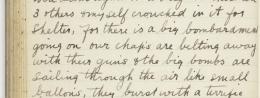 3 others & myself crouched in it for
shelter, for there is a big bombardment
going on our chaps are belting away
with their guns & the big bombs are
sailing through the air like small
ballons, they burst with a terrific